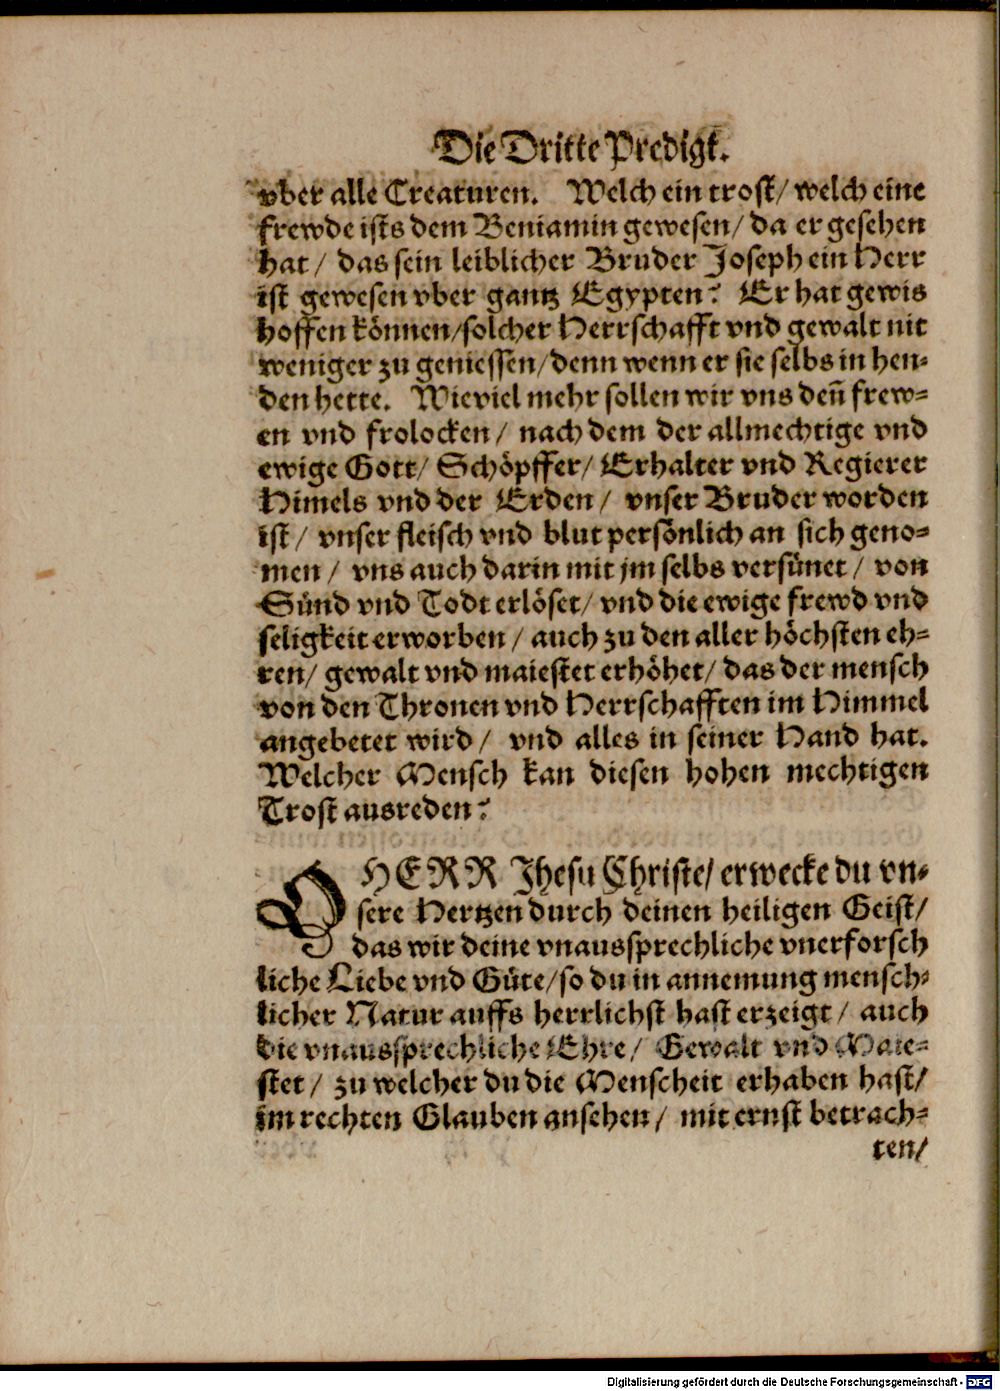 Die Dritte Predigt.
vber alle Creaturen. Welch ein trost/ welch eine
frewde ists dem Beniamin gewesen/ da er gesehen
hat/ das sein leiblicher Bruder Joseph ein Herr
ist gewesen vber gantz Egypten? Er hat gewis
hoffen können/solcher Herrschafft vnd gewalt nit
weniger zu geniessen/denn wenn er sie selbs in hen-
den hette. Wieviel mehr sollen wir vns deñ frew-
en vnd frolocken/ nach dem der allmechtige vnd
ewige Gott/ Schöpffer/ Erhalter vnd Regierer
Himels vnd der Erden/ vnser Bruder worden
ist/ vnser fleisch vnd blut persönlich an sich geno-
men/ vns auch darin mit jm selbs versünet/ von
Sünd vnd Todt erlöset/ vnd die ewige frewd vnd
seligkeit erworben/ auch zu den aller höchsten eh-
ren/ gewalt vnd maiestet erhöhet/ das der mensch
von den Thronen vnd Herrschafften im Himmel
angebetet wird/ vnd alles in seiner Hand hat.
Welcher Mensch kan diesen hohen mechtigen
Trost ausreden?
O HERR Jhesu Christe/ erwecke du vn-
sere Hertzen durch deinen heiligen Geist/
das wir deine vnaussprechliche vnerforsch
liche Liebe vnd Güte/so du in annemung mensch-
licher Natur auffs herrlichst hast erzeigt/ auch
die vnaussprechliche Ehre/ Gewalt vnd Maie-
stet/ zu welcher du die Menscheit erhaben hast/
im rechten Glauben ansehen/ mit ernst betrach-
ten/
Digitalisierung gefördert durch die Deutsche Forschungsgemeinschaft - DFG